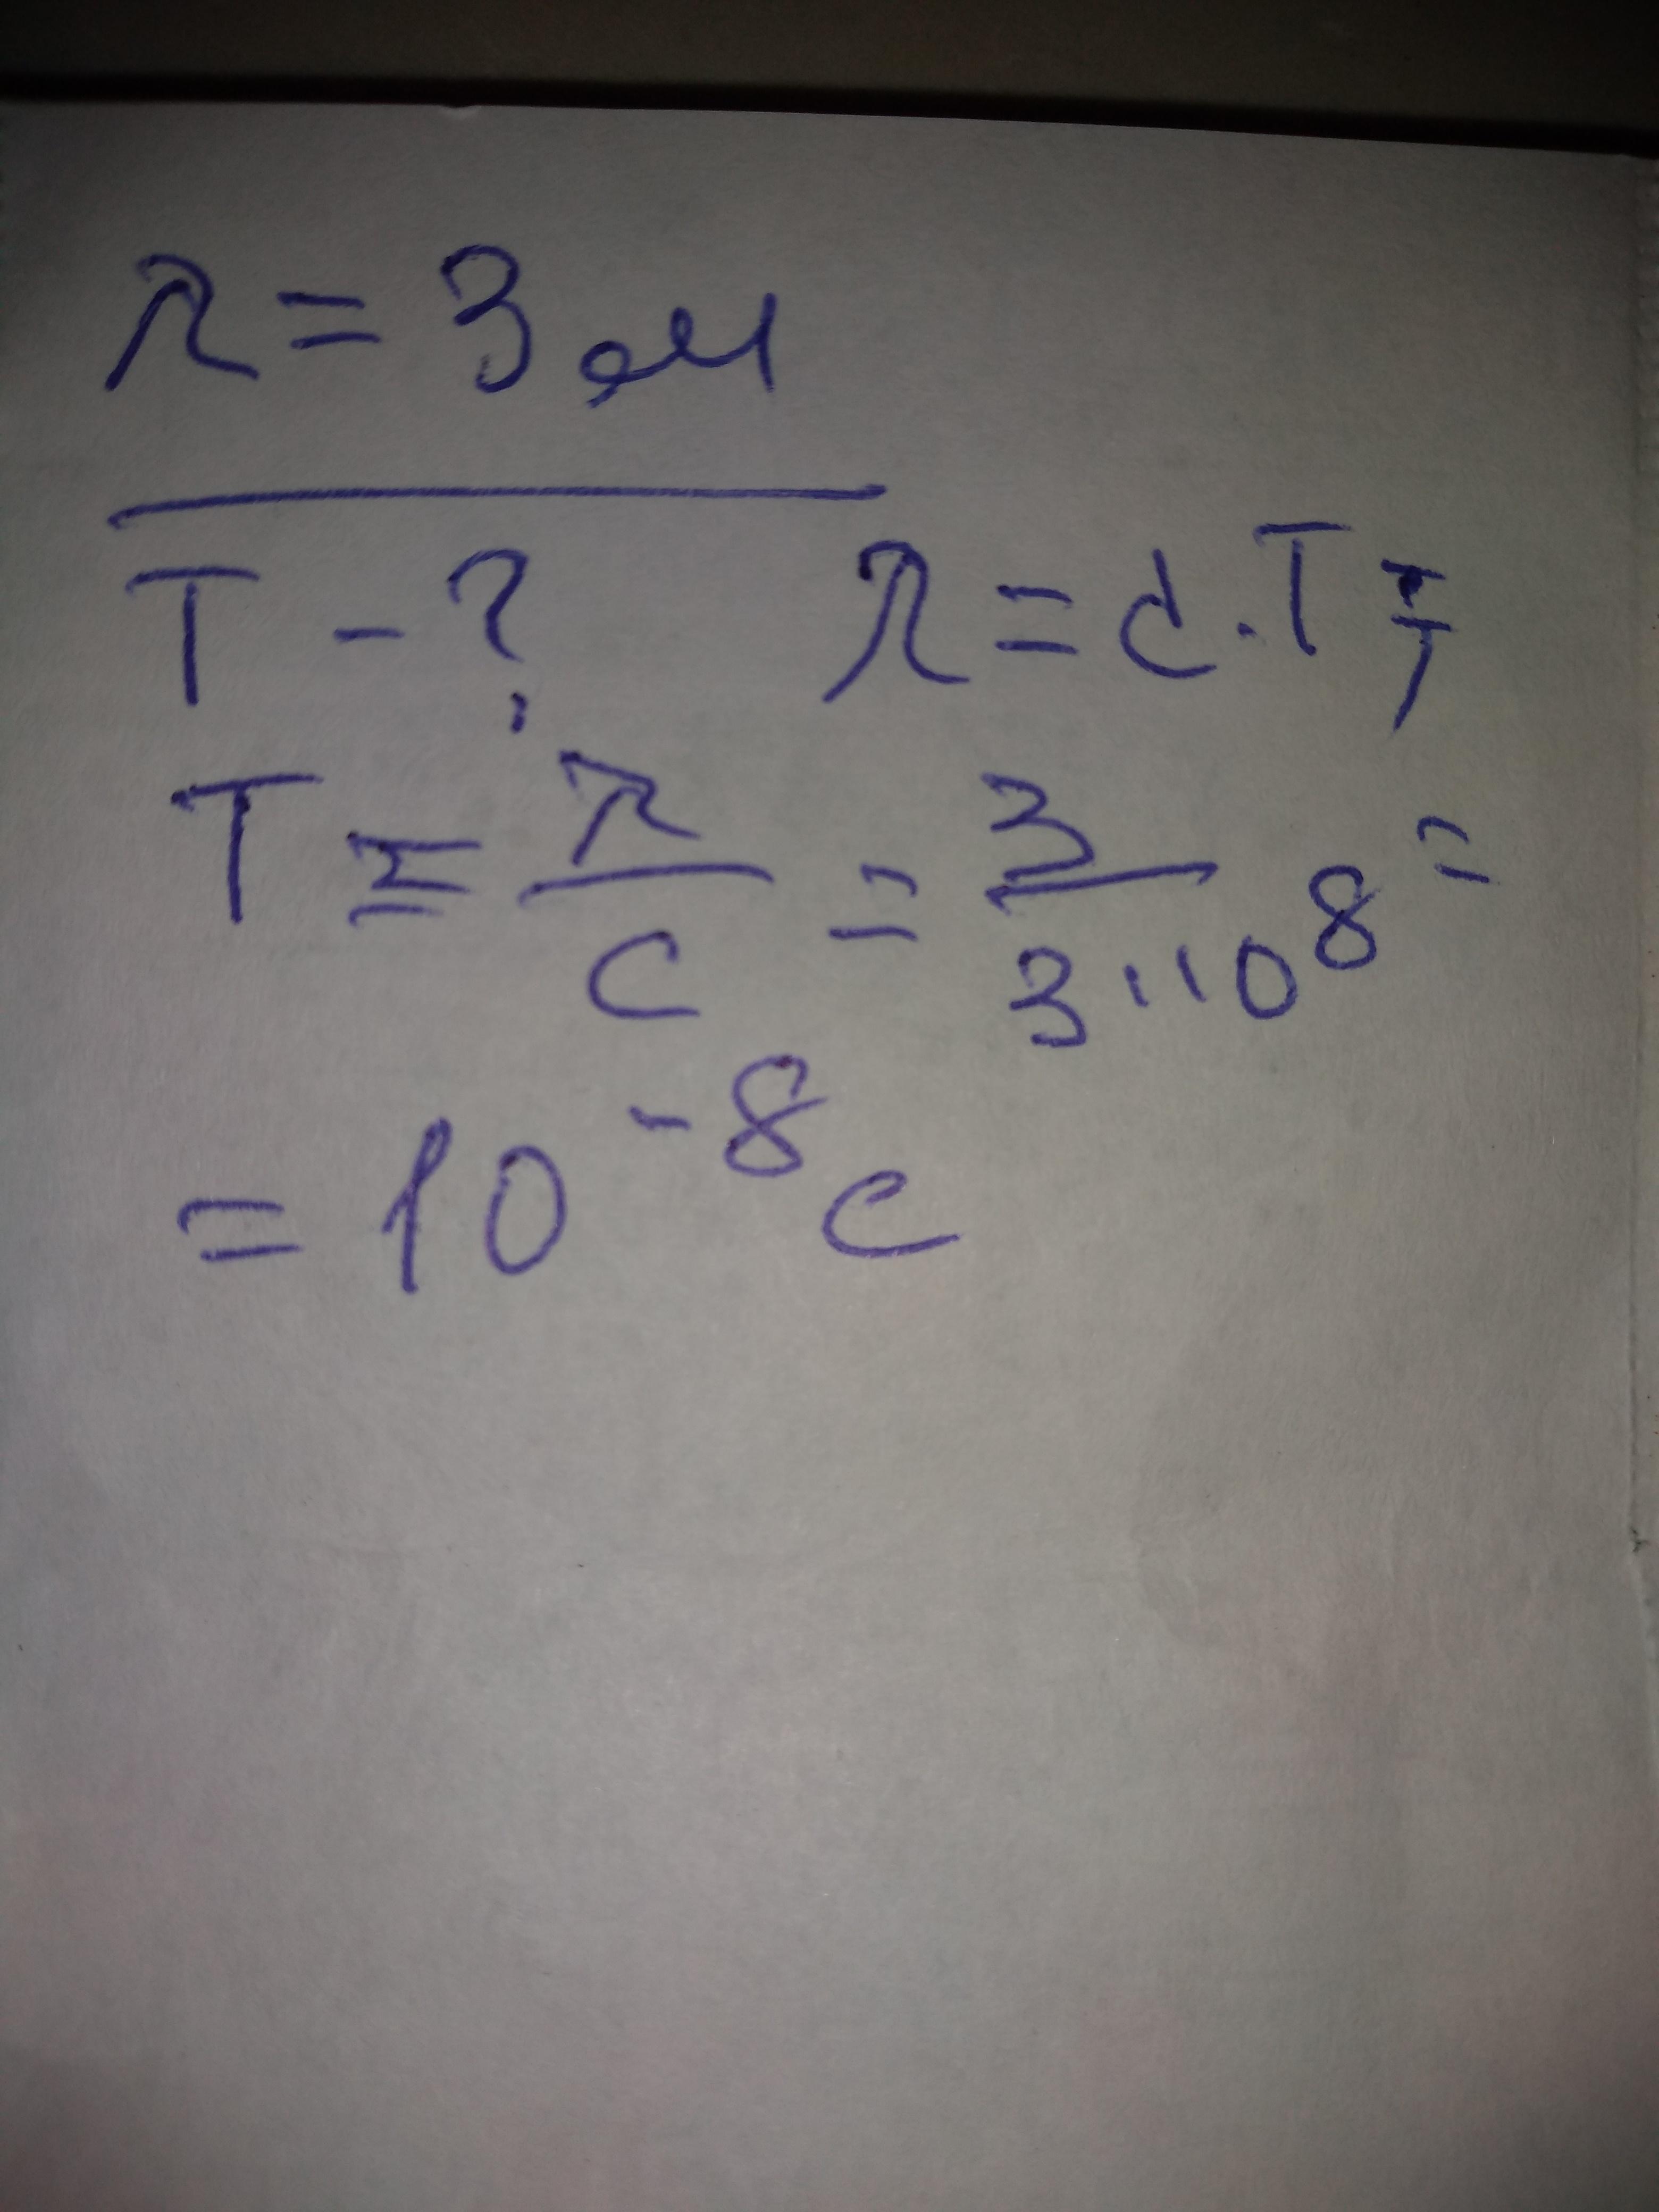 λ = 3 м
T - ?
λ = c · T ;
T = λ/c = 3/3·10⁸ =
= 10⁻⁸ c